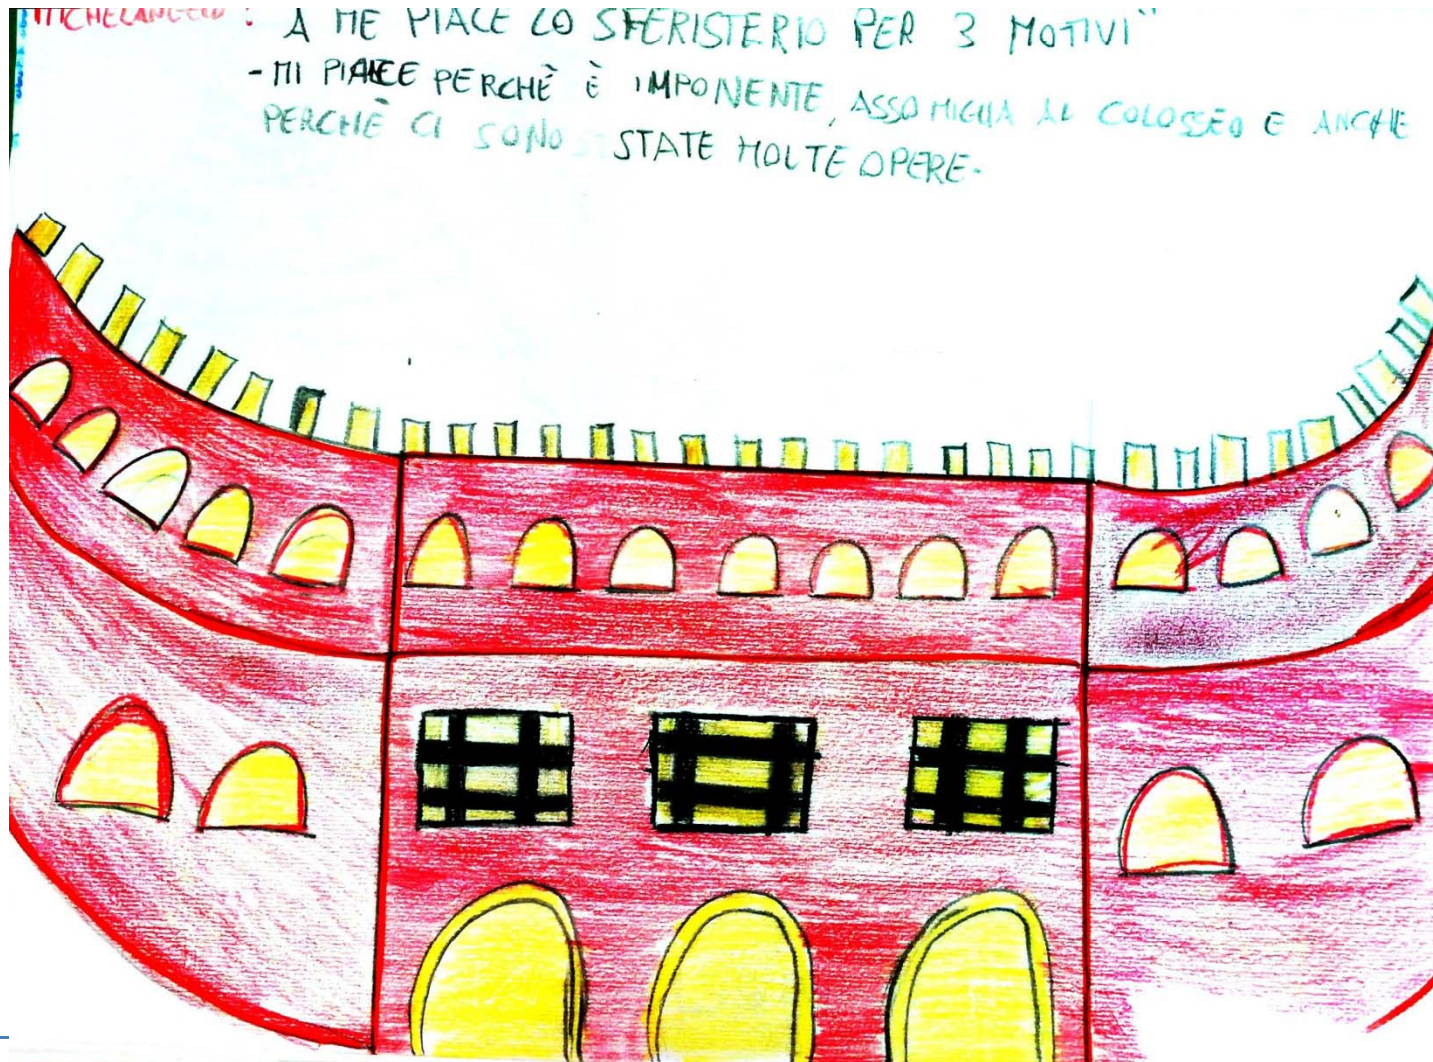 MICHELANGELO: "A ME PIACE LO SFERISTERIO PER 3 MOTIVI"
- MI PIACE PERCHÈ È IMPONENTE, ASSOMIGLIA AL COLOSSEO E ANCHE
PERCHÈ CI SONO STATE MOLTE OPERE-